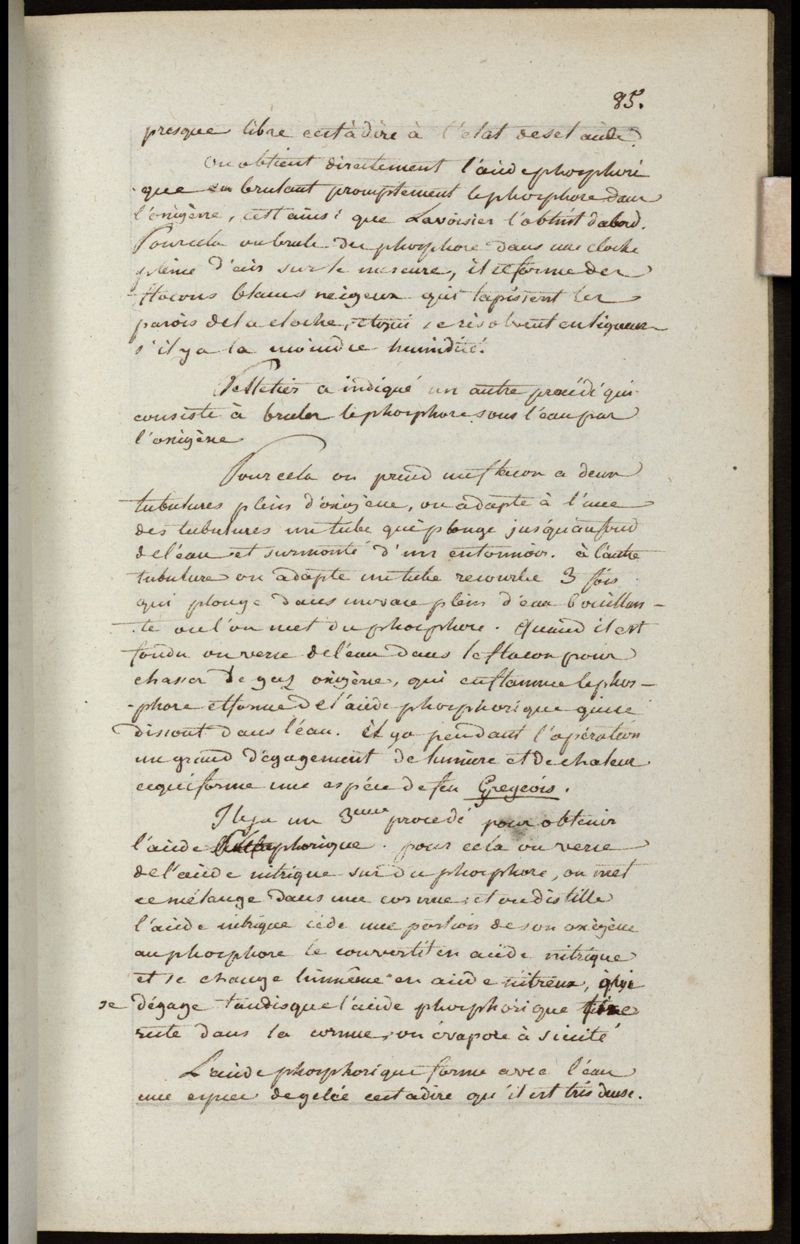 85.
presque libre cest à dire à l'etat desel acide.
On obtient directement l'acide phosphori
que en brulant promptement le phosphore dans
l'oxigène, c'est ainsi que Lavoisier l'obtint d'abord.
Pour cela on brule du phosphore dans une cloche
pleine d'air sur le mercure, il se forme des
flocons blancs neigeux qui tapissent les
parois de la cloche, et qui se résolvent en liqueur
s'il y a la moindre humidité.
Pelletier a indiqué un autre procédé qui
consiste à bruler le phosphore sous l'eau par
l'oxigène
Pour cela on prend un flacon a deux
tubulures plein d'oxigene, on adapte à l'une
des tubulures un tube qui plonge jusqu'au fond
de l'eau et surmonté d'un entonnoir. à l'autre
tubulure on adapte un tube recourbé 3 fois
qui plonge dans un vase plein d'eau bouillan-
te ou l'on met du phosphore. Quand il est
fondu on verse de l'eau dans le flacon pour
chasser le gaz oxigène, qui enflamme le phos-
-phore et forme de l'acide phosphorique qui se
dissout dans l'eau. il y a pendant l'opération
un grand dégagement de lumiere et de chaleur
ce qui forme une espéce de feu Gregeois.
Il y a un 3eme procédé pour obtenir
l'acide phorique. pour cela on verse
de l'acide nitrique sur du phosphore, on met
ce mélange dans une cornue et on distille
l'acide nitrique cède une portion de son oxigène
au phosphore le convertit en acide nitrique
et se change luimême en acide nitreux, qui
se dégage tandis que l'acide phosphorique
reste dans la cornue, on évapore à siccité
L'acide phosphorique forme avec l'eau
une espece de gelée cest adire qu'il est très dense.